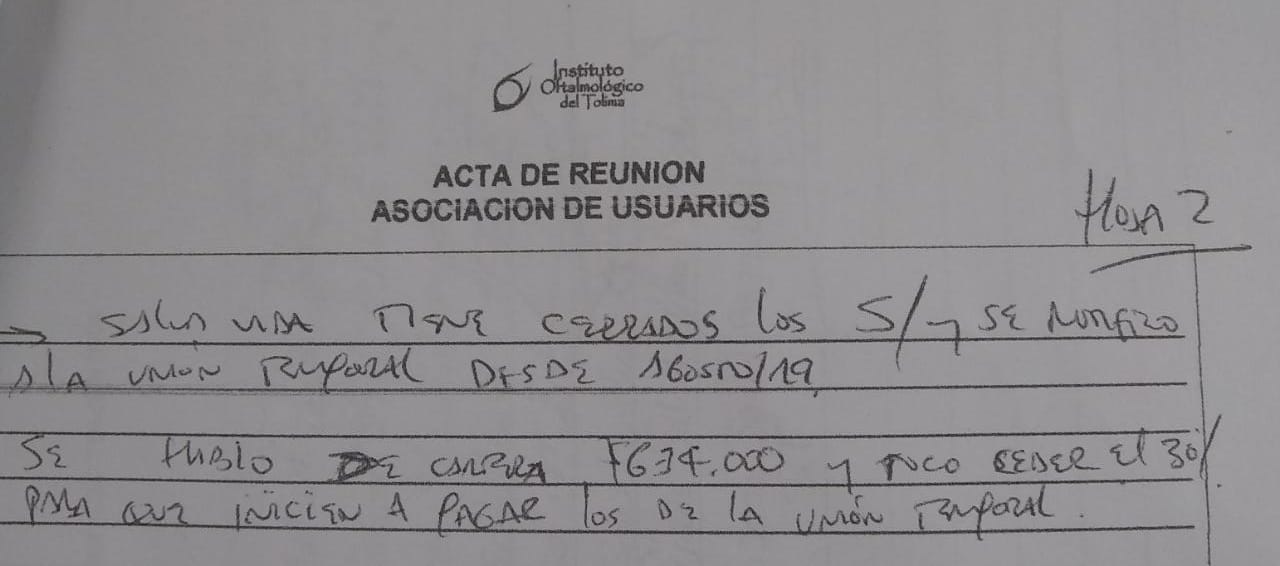 Instituto
Oftalmológico
del Tolima
ACTA DE REUNION
ASOCIACION DE USUARIOS
HOJA 2
→ SALUD VIDA TIENE CERRADOS los S/ y SE NOTIFICO
A lA UNIÓN TEMPORAL DESDE AGOSTO/19
SE HABLO DE CARTERA 634.000 y TOCO CEDER El 30%
PARA QUE INICIEN A PAGAR los DE lA UNIÓN TEMPORAL.